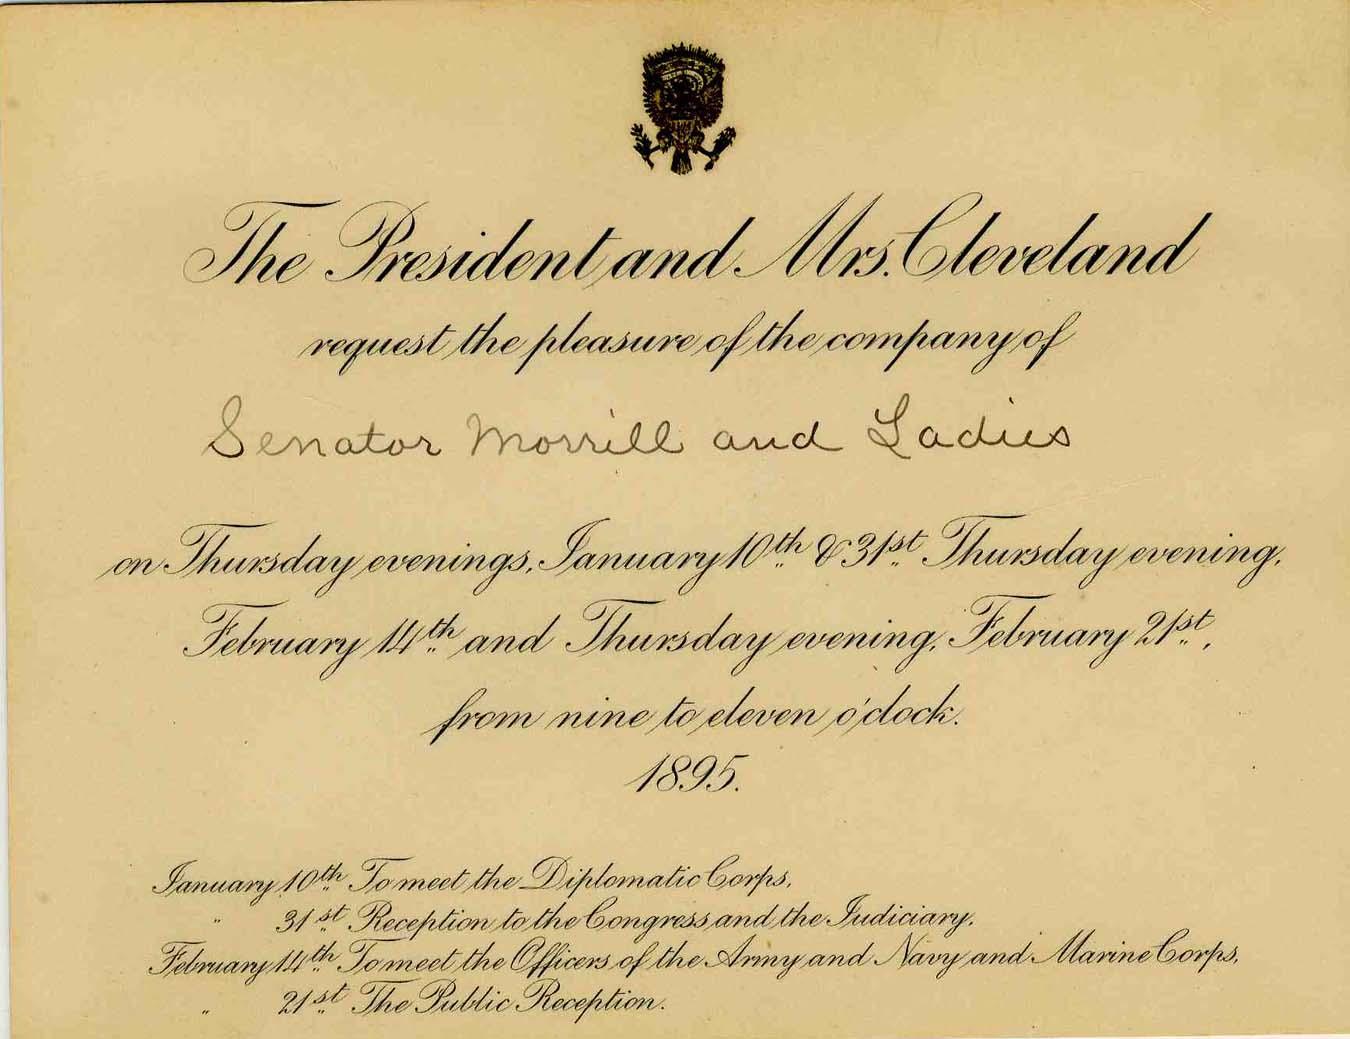 The President and Mrs. Cleveland
request the pleasure of the company of
Senator Morrill and Ladies
on Thursday evenings, January 10th & 31st Thursday evening,
February 14th and Thursday evening, February 21st,
from nine to eleven o'clock.
1895.
January 10th To meet the Diplomatic Corps,
" 31st Reception to the Congress and the Judiciary,
February 14th To meet the Officers of the Army and Navy and Marine Corps,
" 21st The Public Reception.